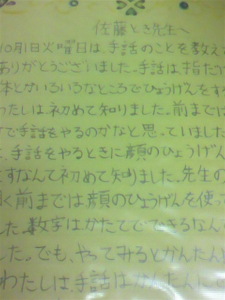 佐藤とき先生へ
10月1日火曜日は、手話のことを教え
ありがとうございました。手話は、指だけ
体といろいろなところでひょうげんをす
わたしは初めて知りました。前までは
で手話をやるのかなと思っていました
、手話をやるときに顔のひょうげん
てすなんて初めて知りました。先生の
く前までは顔のひょうげんを使っ
した。数字はかたてでできるなん
した。でも、やってみるとかんたん
わたしは、手話はかんたんに